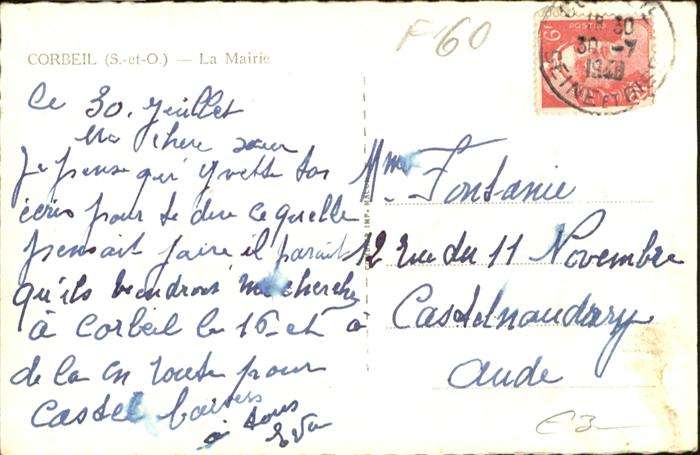 CORBEIL (S.-et-O.) — La Mairie
F 60
6F
POSTES
18 30
30 -7
1948
SEINE ET OISE
Ce 30. Juillet
Ma chere sœur
Je pense qu'Yvette tas
écris pour te dire ce quelle
pensait faire il parait
qu'ils viendrois me cherche
à Corbeil le 16 et
de la en route pour
Castel baisers
à tous
Eva
Mme Fontanie
12 rue du 11 Novembre
Castelnaudary
Aude